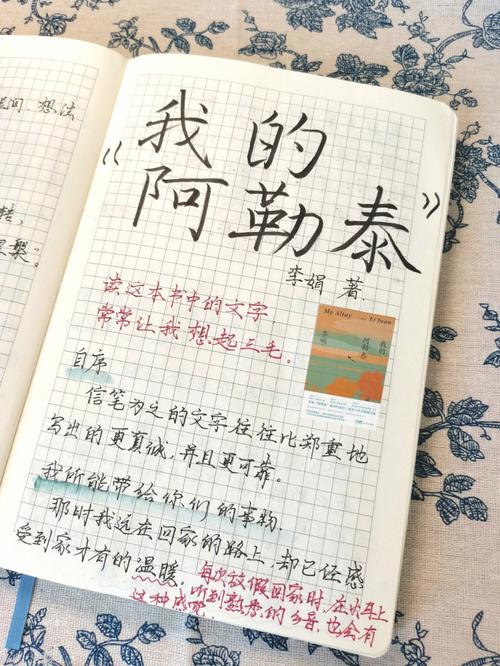 想法
《我的
阿勒泰》
李娟 著
读这本书中的文字,
常常让我想起三毛。
My Altay
Li Juan
我的
阿勒泰
李娟
自序
信笔为之的文字往往比郑重地
写出的更真诚,并且更可靠。
我所能带给你们的事物.
那时我远在回家的路上,却已经感
受到家才有的温暖。
每次放假回家时,在火车上
听到熟悉的乡音,也会有
这种感觉